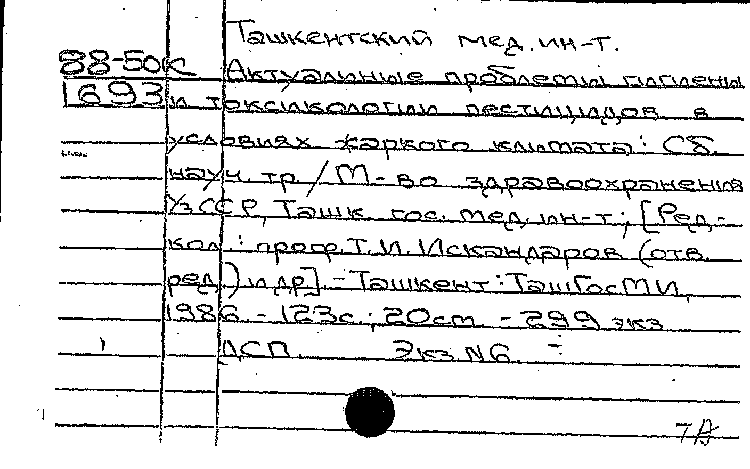 Ташкентский мед. ин-т.
88-50к Актуальные проблемы гигиены
1693 и токсикологии пестицидов в
условиях жаркого климата: Сб.
науч. тр. / М-во здравоохранения
УзССР, Ташк. гос. мед. ин-т; [Ред-
кол.: проф. Т.И. Искандаров (отв.
ред.) и др.]. - Ташкент: ТашГосМИ,
1986 - 123с.; 20см - 299 экз
ДСП. Экз. N6. -